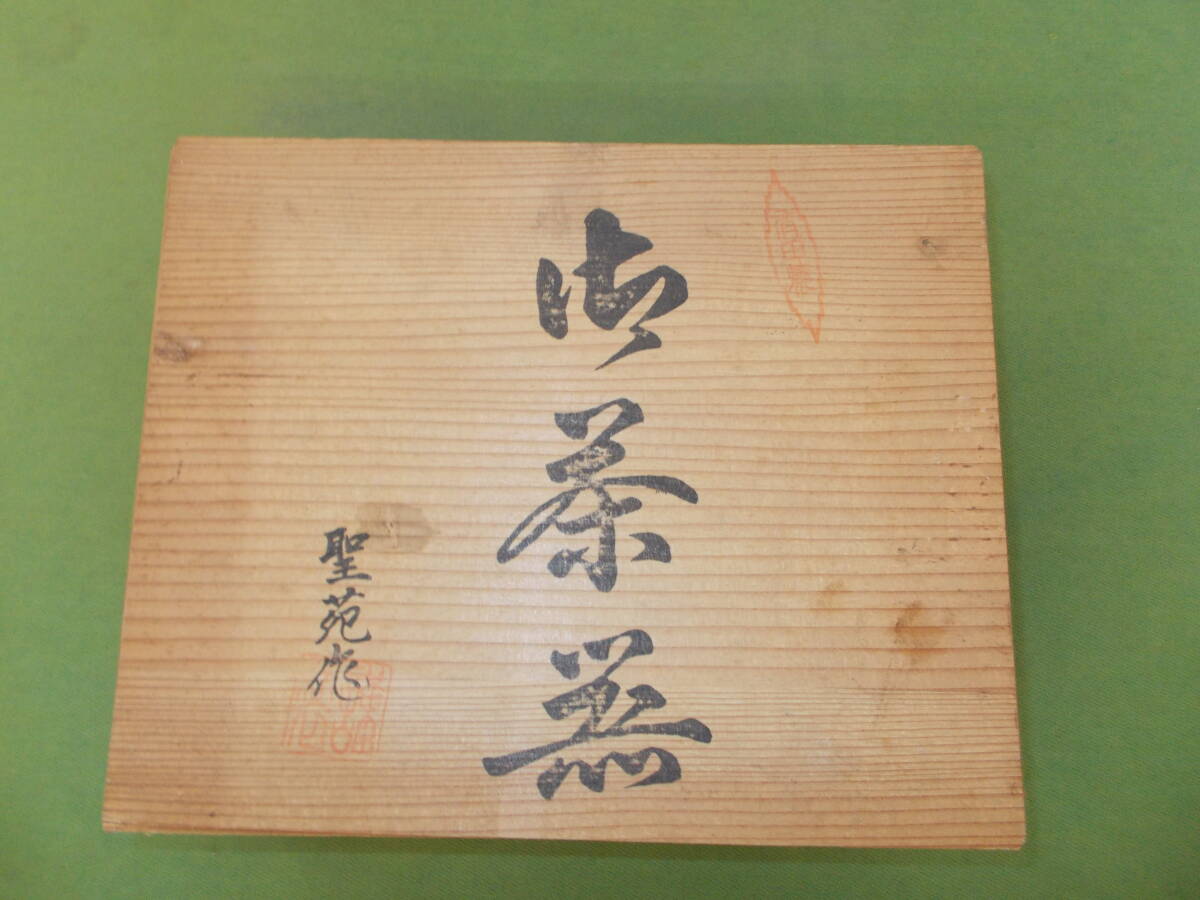 御茶器
聖苑作